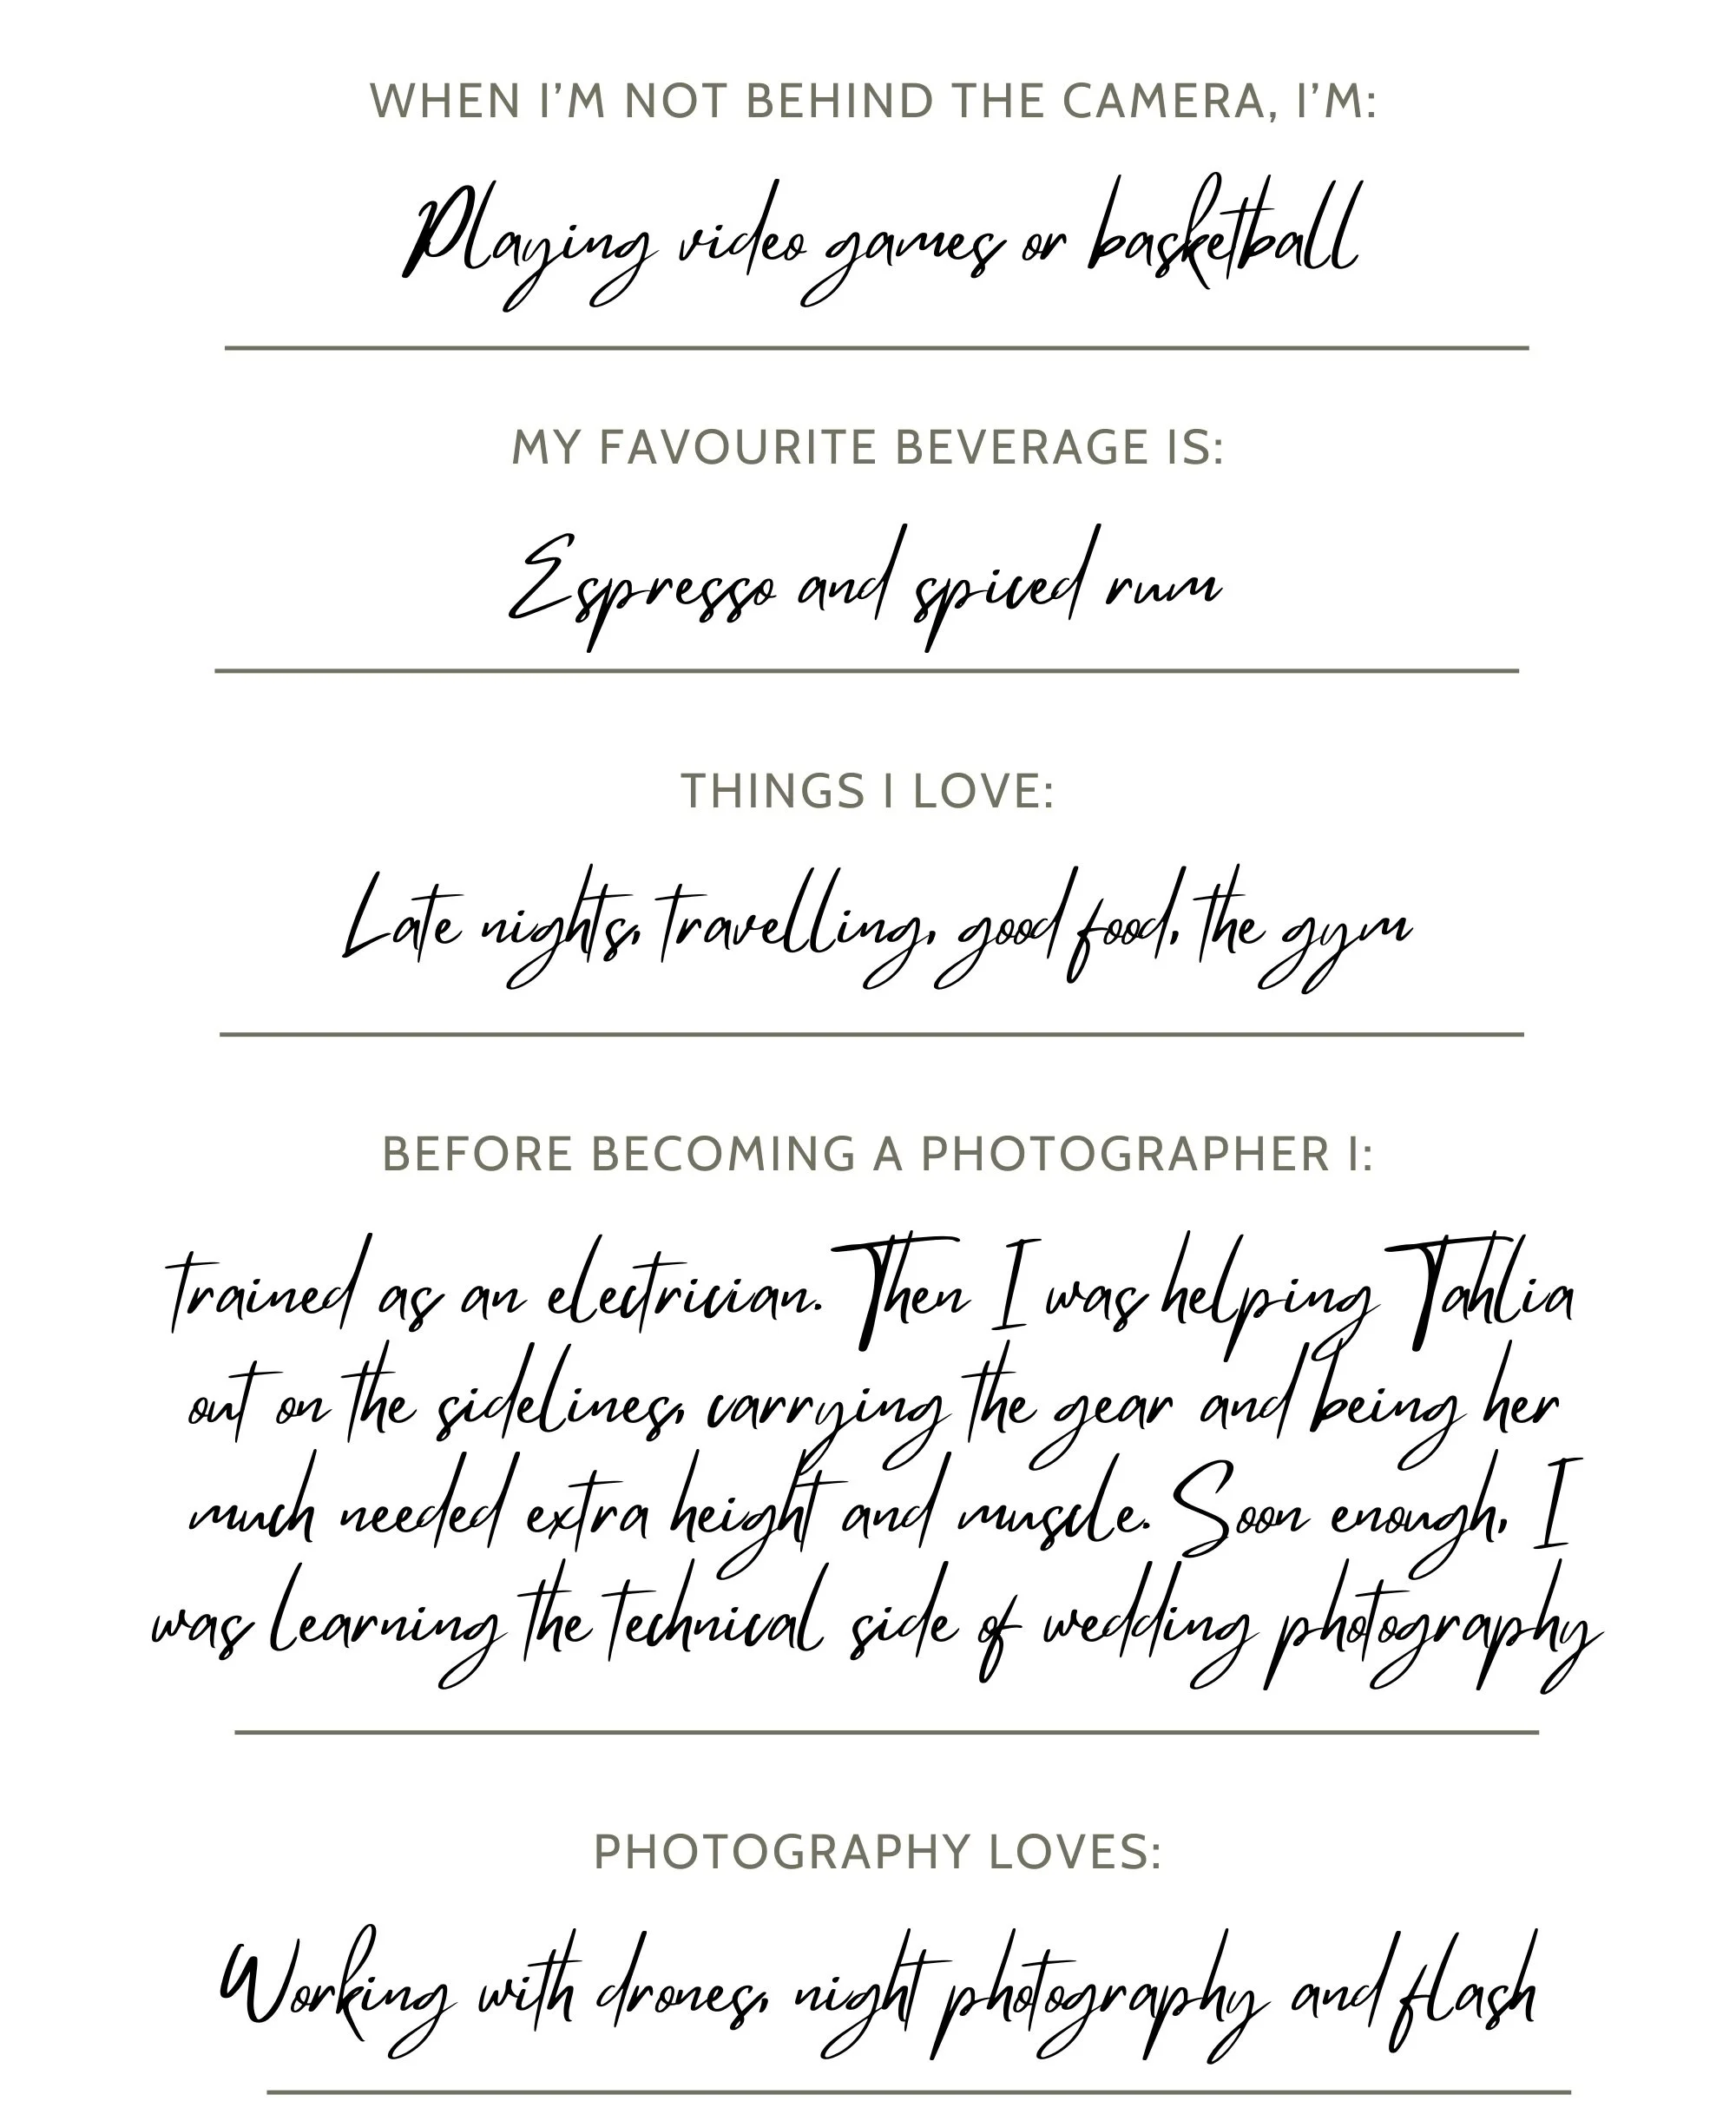 WHEN I'M NOT BEHIND THE CAMERA, I'M:
Playing video games or basketball
MY FAVOURITE BEVERAGE IS:
Espresso and spiced rum
THINGS I LOVE:
Late nights, travelling, good food, the gym
BEFORE BECOMING A PHOTOGRAPHER I:
trained as an electrician. Then I was helping Tahlia
out on the sidelines, carrying the gear and being her
much needed extra height and muscle. Soon enough, I
was learning the technical side of wedding photography
PHOTOGRAPHY LOVES:
Working with drones, night photography and flash